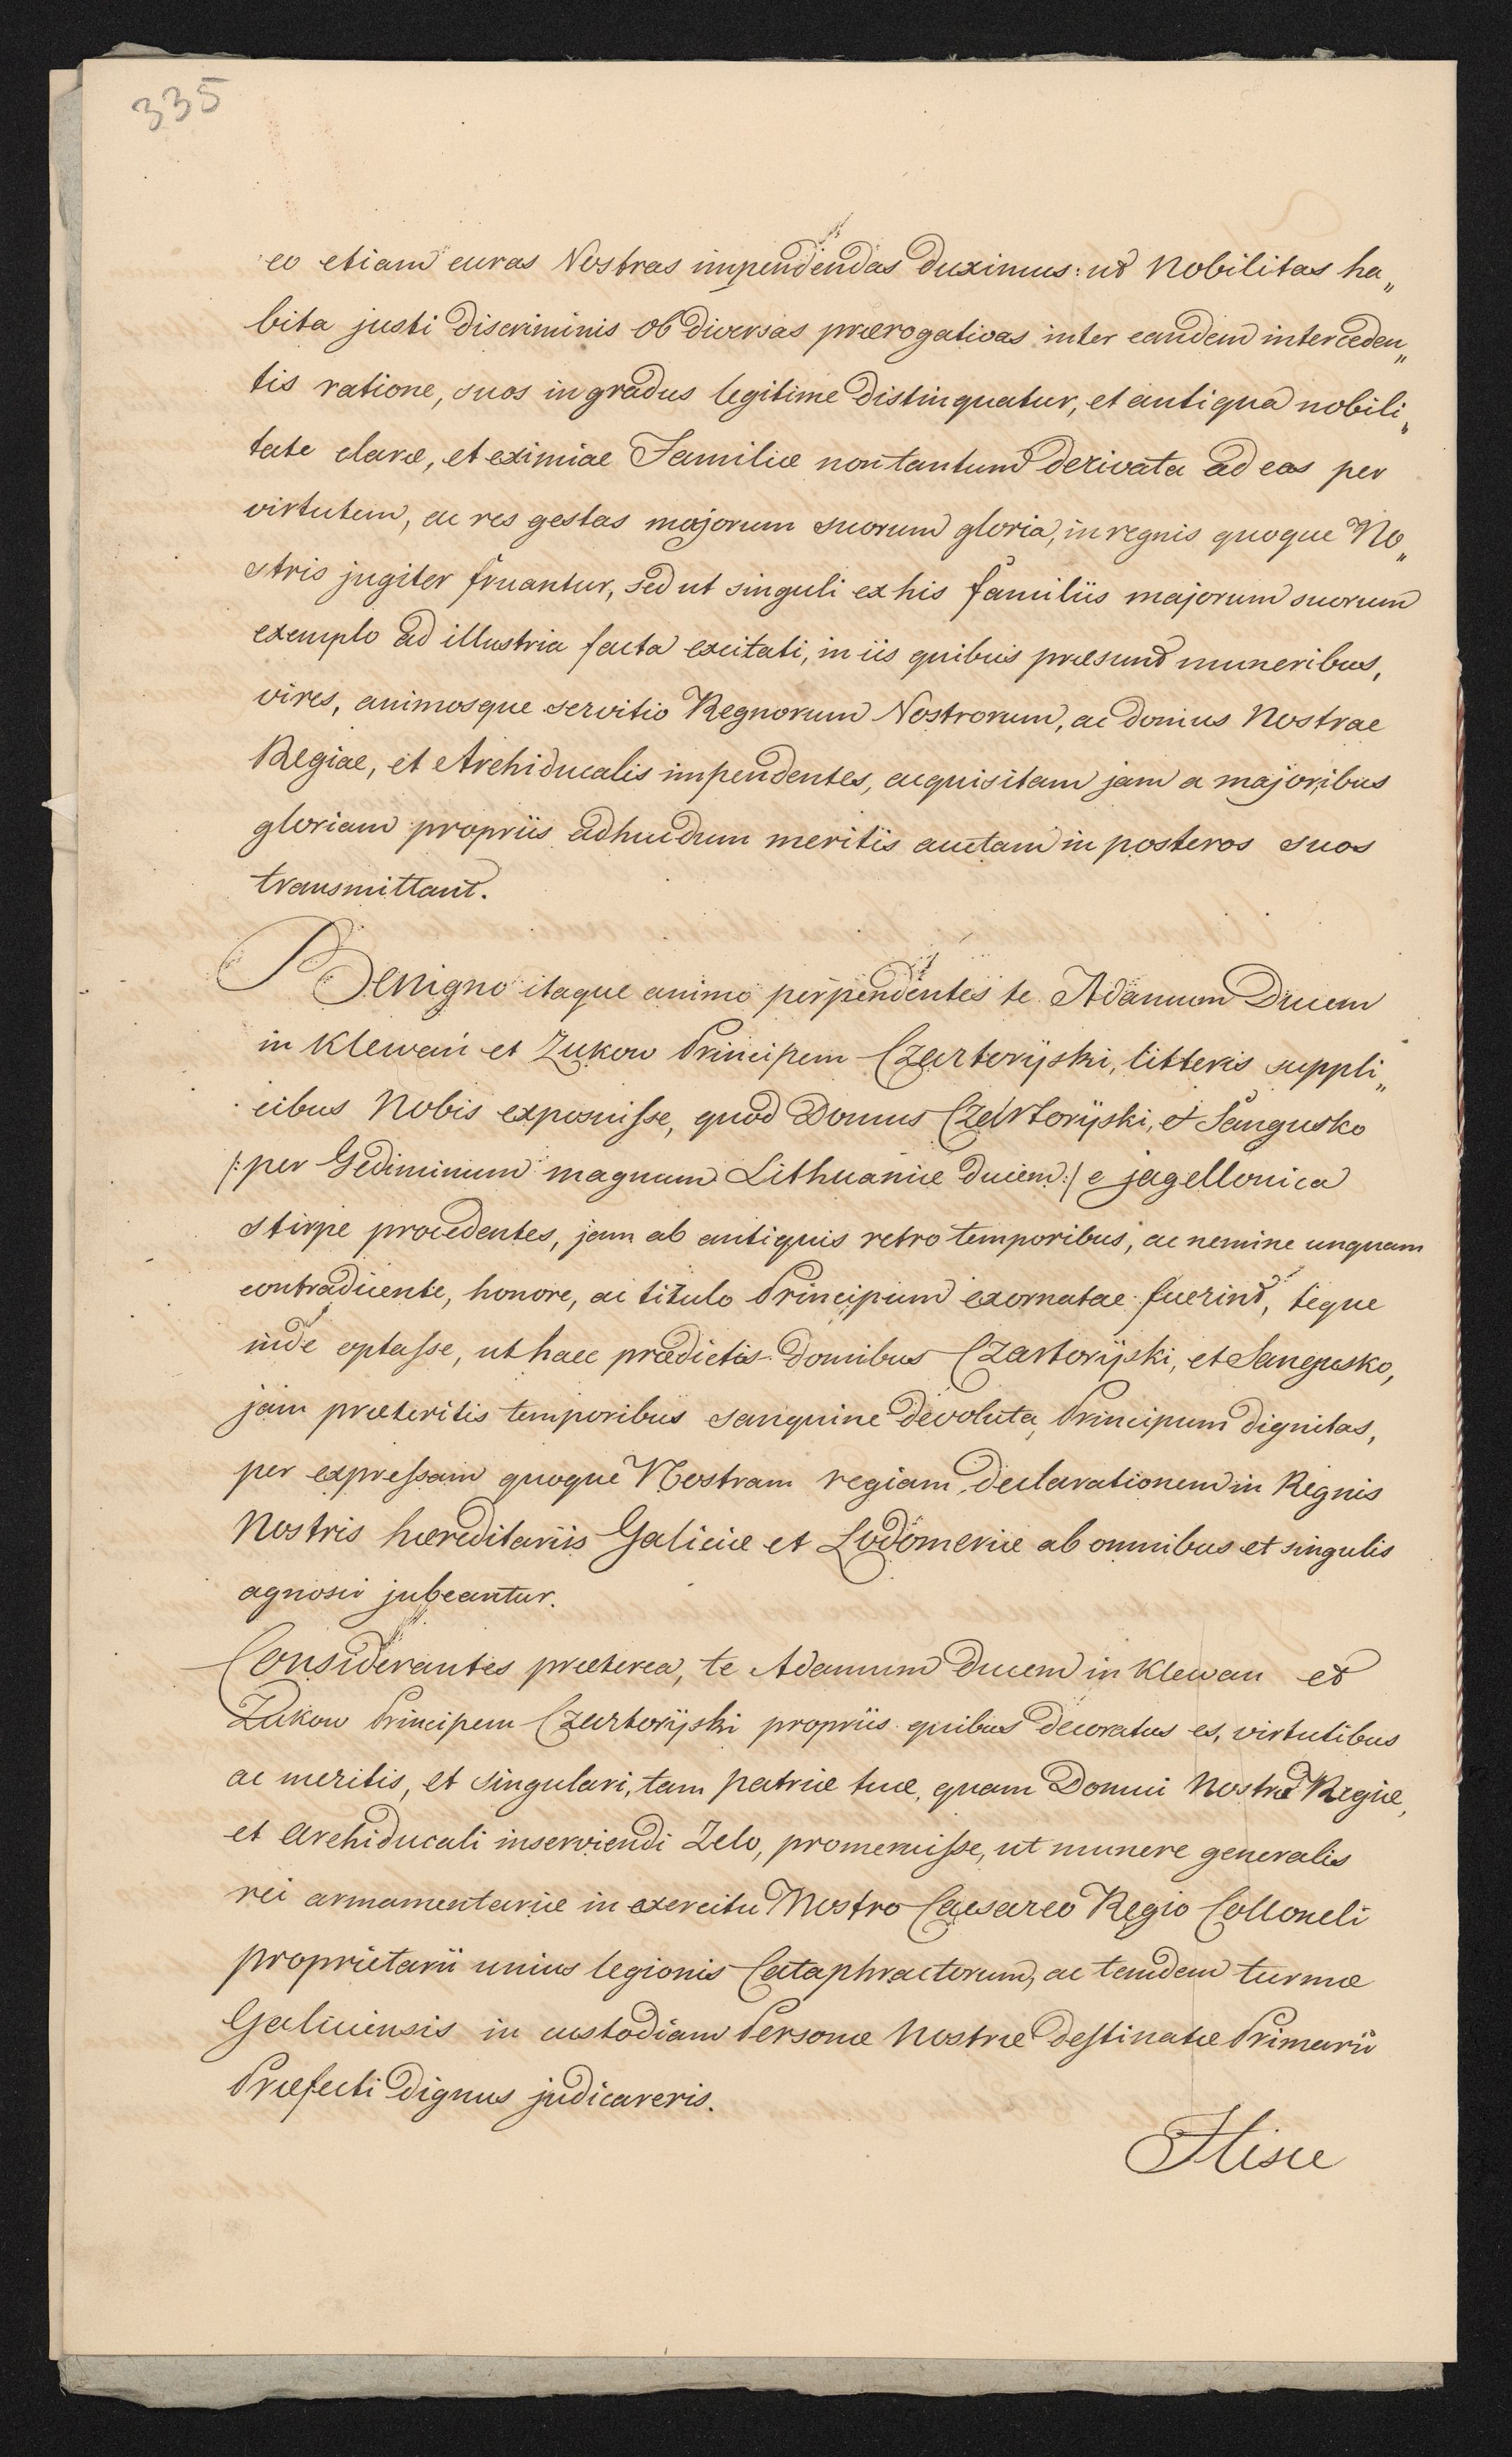 335
eo etiam curas Nostras impendendas duximus: ut Nobilitas ha„
bita justi discriminis ob diversas prærogativas inter eandem interceden„
tis ratione, suos in gradus legitime distinquatur, et antiqua nobili„
tate claræ, et eximiae Familiæ non tantum derivata ad eas per
virtutem, ac res gestas majorum suorum gloria, in regnis quoque No„
stris jugiter fruantur, sed ut singuli ex his familiis majorum suorum
exemplo ad illustria facta excitati, in iis quibus præsunt muneribus,
vires, animosque servitio Regnorum Nostrorum, ac domus Nostrae
Regiae, et Archiducalis impendentes, acquisitam jam a majoribus
gloriam propriis adhucdum meritis auctam in posteros suos
transmittant.
Benigno itaque animo perpendentes te Adamum Ducem
in Klewań et Zukow Principem Czartoryski, litteris suppli„
cibus Nobis exposuisse, quod Domus Czartoryski, et Sangusko
/: per Gediminum magnum Lithuaniæ ducem :/ e jagellonica
stirpe procedentes, jam ab antiquis retro temporibus, ac nemine unquam
contradicente, honore, ac titulo Principum exornatae fuerint, teque
inde optasse, ut haec prædictis domibus Czartoryski, et Sangusko,
jam præteritis temporibus sanguine devoluta, Principum dignitas,
per expressam quoque Nostram regiam declarationem in Regnis
Nostris hæreditariis Galiciæ et Lodomeriæ ab omnibus et singulis
agnosci jubeantur.
Considerantes præterea, te Adamum Ducem in Klewan et
Zukow Principem Czartoryski propriis quibus decoratus es, virtutibus
ac meritis, et singulari, tam patriæ tuæ, quam Domui Nostræ Regiæ,
et Archiducali inserviendi Zelo, promeruisse, ut munere generalis
rei armamentariæ in exercitu Nostro Caesareo Regio Colloneli
proprietarii unius legionis Cataphractorum, ac tandem turmæ
Galiciensis in custodiam Personæ Nostræ destinatæ Primarii
Præfecti dignus judicareris.
Hisce